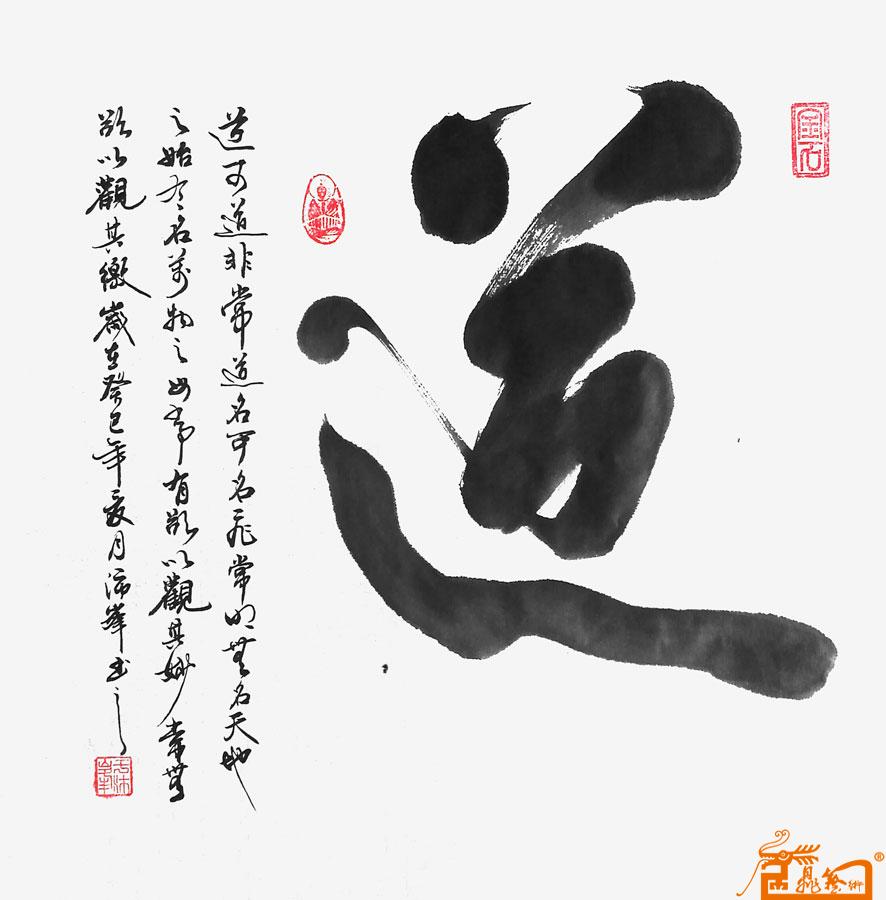 金石
道
道可道非常道名可名非常無名天地
之始有名萬物之母常有欲以觀其妙常無
欲以觀其徼歲在癸巳年夏月沛峯書之